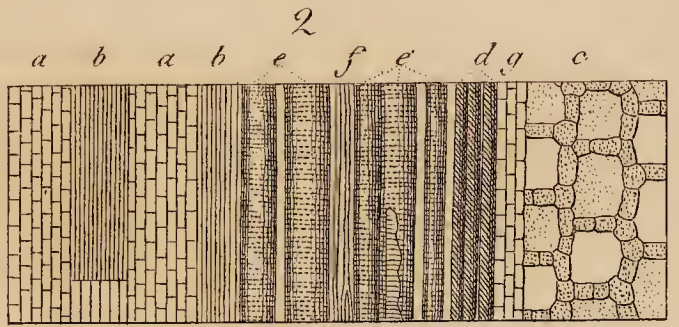 2
a b a b e f e d g c